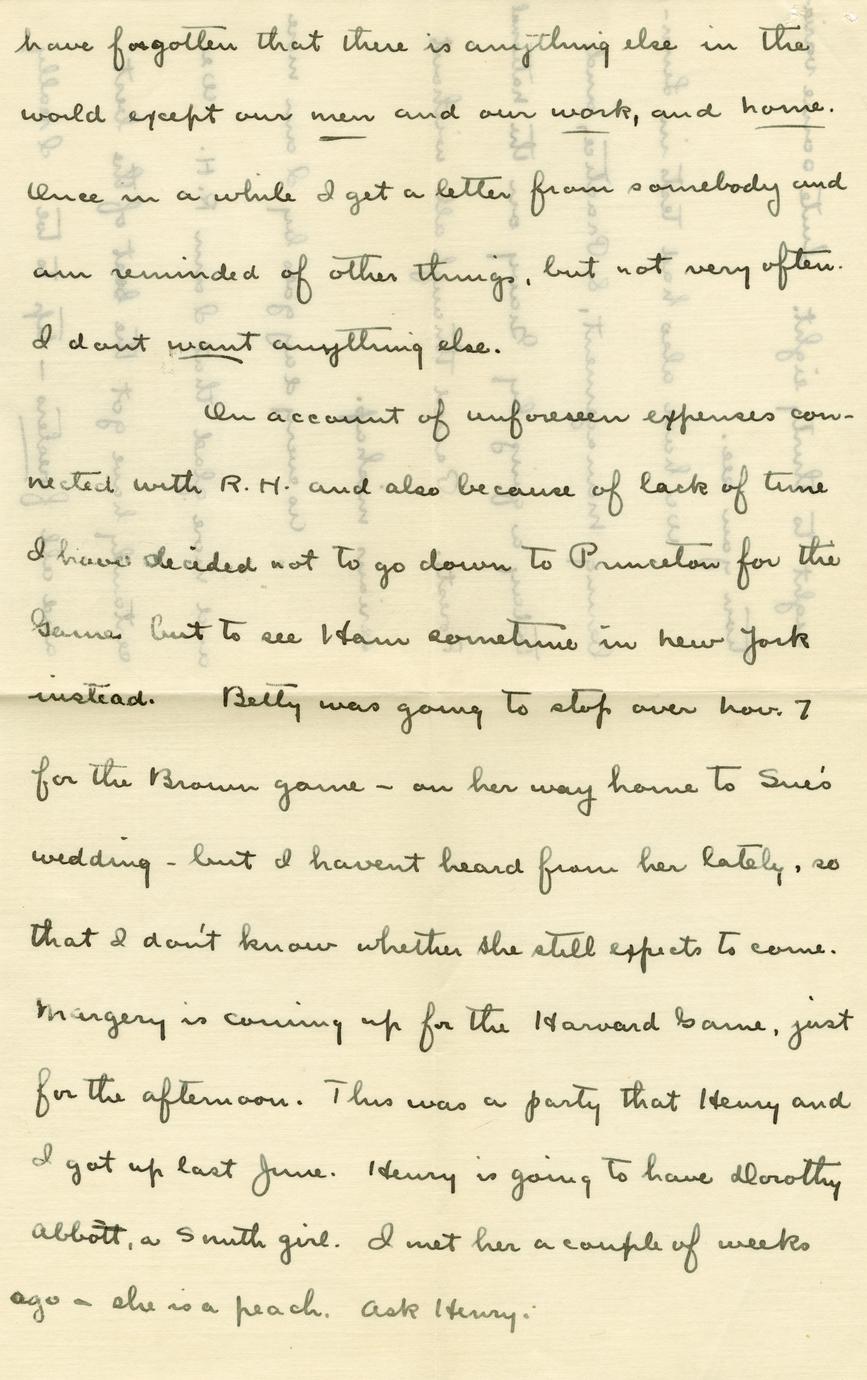 have forgotten that there is anything else in the
world except our men and our work, and home.
Once in a while I get a letter from somebody and
am reminded of other things, but not very often.
I dont want anything else.
On account of unforeseen expenses con-
nected with R.H. and also because of lack of time
I have decided not to go down to Princeton for the
Game but to see Ham sometime in New York
instead. Betty was going to stop over Nov. 7
for the Brown game - on her way home to Sue's
wedding - but I havent heard from her lately, so
that I don't know whether she still expects to come.
Margery is coming up for the Harvard Game, just
for the afternoon. This was a party that Henry and
I got up last June. Henry is going to have Dorothy
Abbott, a Smith girl. I met her a couple of weeks
ago - she is a peach. Ask Henry.